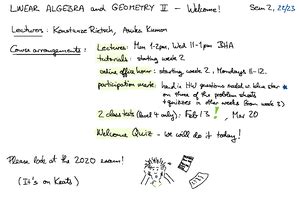 LINEAR ALGEBRA and GEOMETRY II - Welcome! Sem 2, 22/23
Lectures: Konstanze Rietsch, Asuka Kumon
Course arrangements: Lectures: Mon 1-2pm, Wed 11-1pm BHA
tutorials: starting week 2
online office hour: starting week 2, Mondays 11-12.
participation mark: hand in HW questions marked in blue star
on three of the problem sheets
+ quizzes in other weeks (from week 3)
2 class tests (Level 4 only): Feb 13!, Mar 20
Welcome Quiz - we will do it today!
Please look at the 2020 exam!
(It's on Keats)